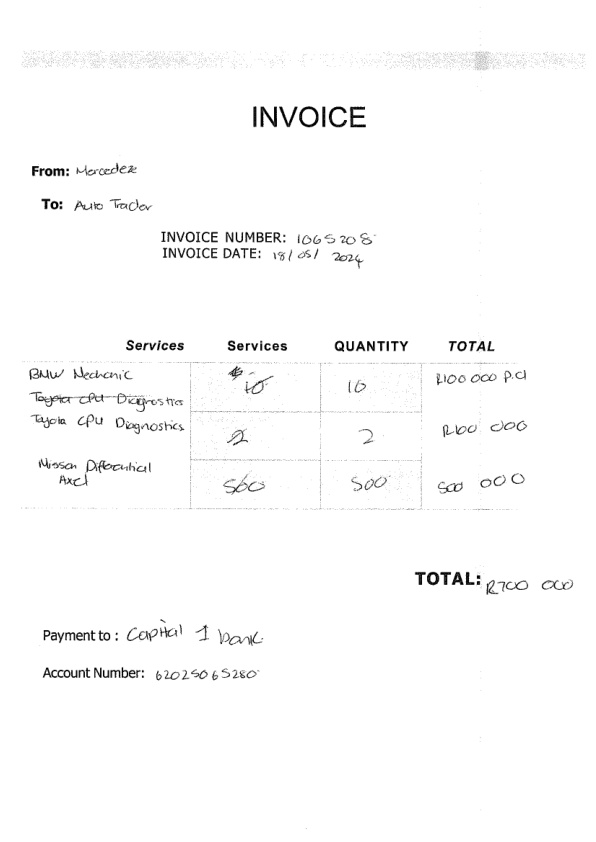 INVOICE
From: Mercedez
To: Auto Trader
INVOICE NUMBER: 1065208
INVOICE DATE: 18/05/ 2024
Services Services QUANTITY TOTAL
BMW Mechanic 10 10 R100 000 P.C
Toyota CPU Diagnostics
Toyota CPU Diagnostics 2 2 R100 000
Nissan Differential
Axel 500 500 500 000
TOTAL: R700 000
Payment to : Capital 1 bank
Account Number: 62025065280